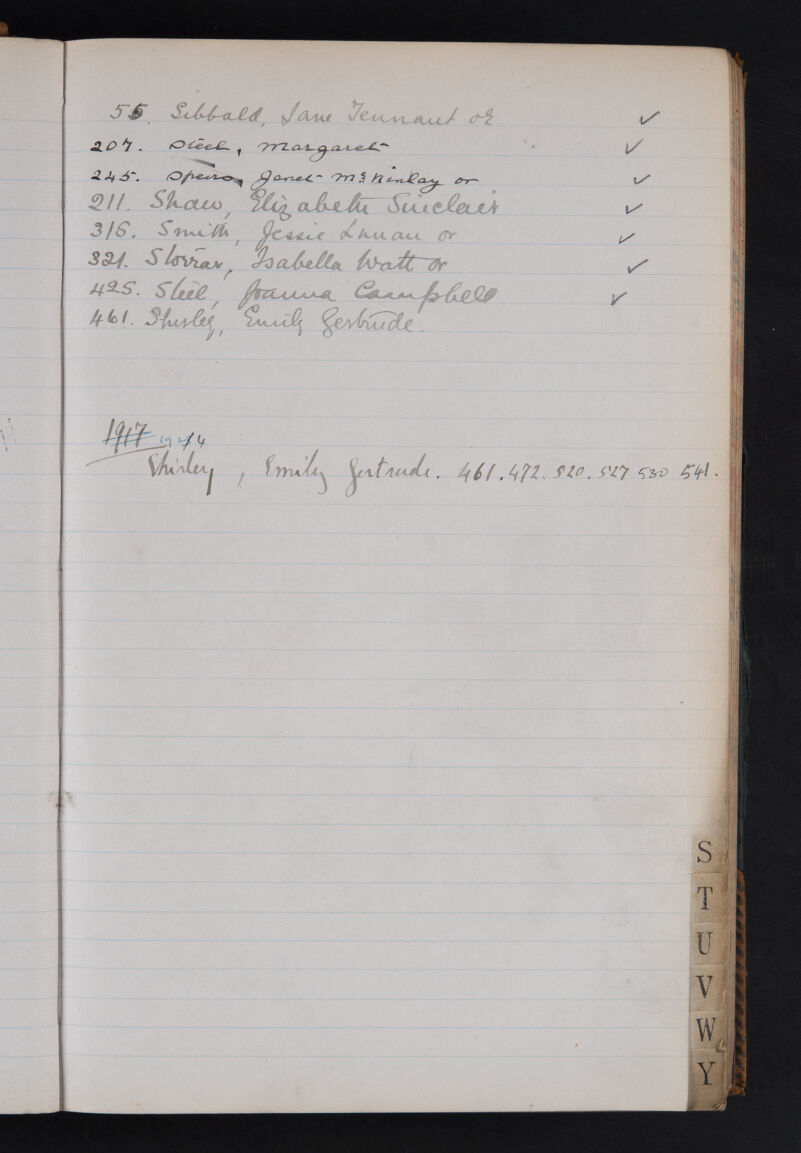 55. Sibbald, Jane Tennant or ✓
207. Steel, Margaret ✓
245. Speirs, Janet McKinlay or ✓
211. Shaw, Elizabeth Sinclair ✓
316. Smith, Jessie Lunan or ✓
321. Storrar, Isabella Watt or ✓
425. Steel, Joanna Campbell ✓
461. Shirley, Emily Gertrude.
1917 1924
Shirley, Emily Gertrude. 461. 472. 520. 527 530 541.
S
T
U
V
W
Y